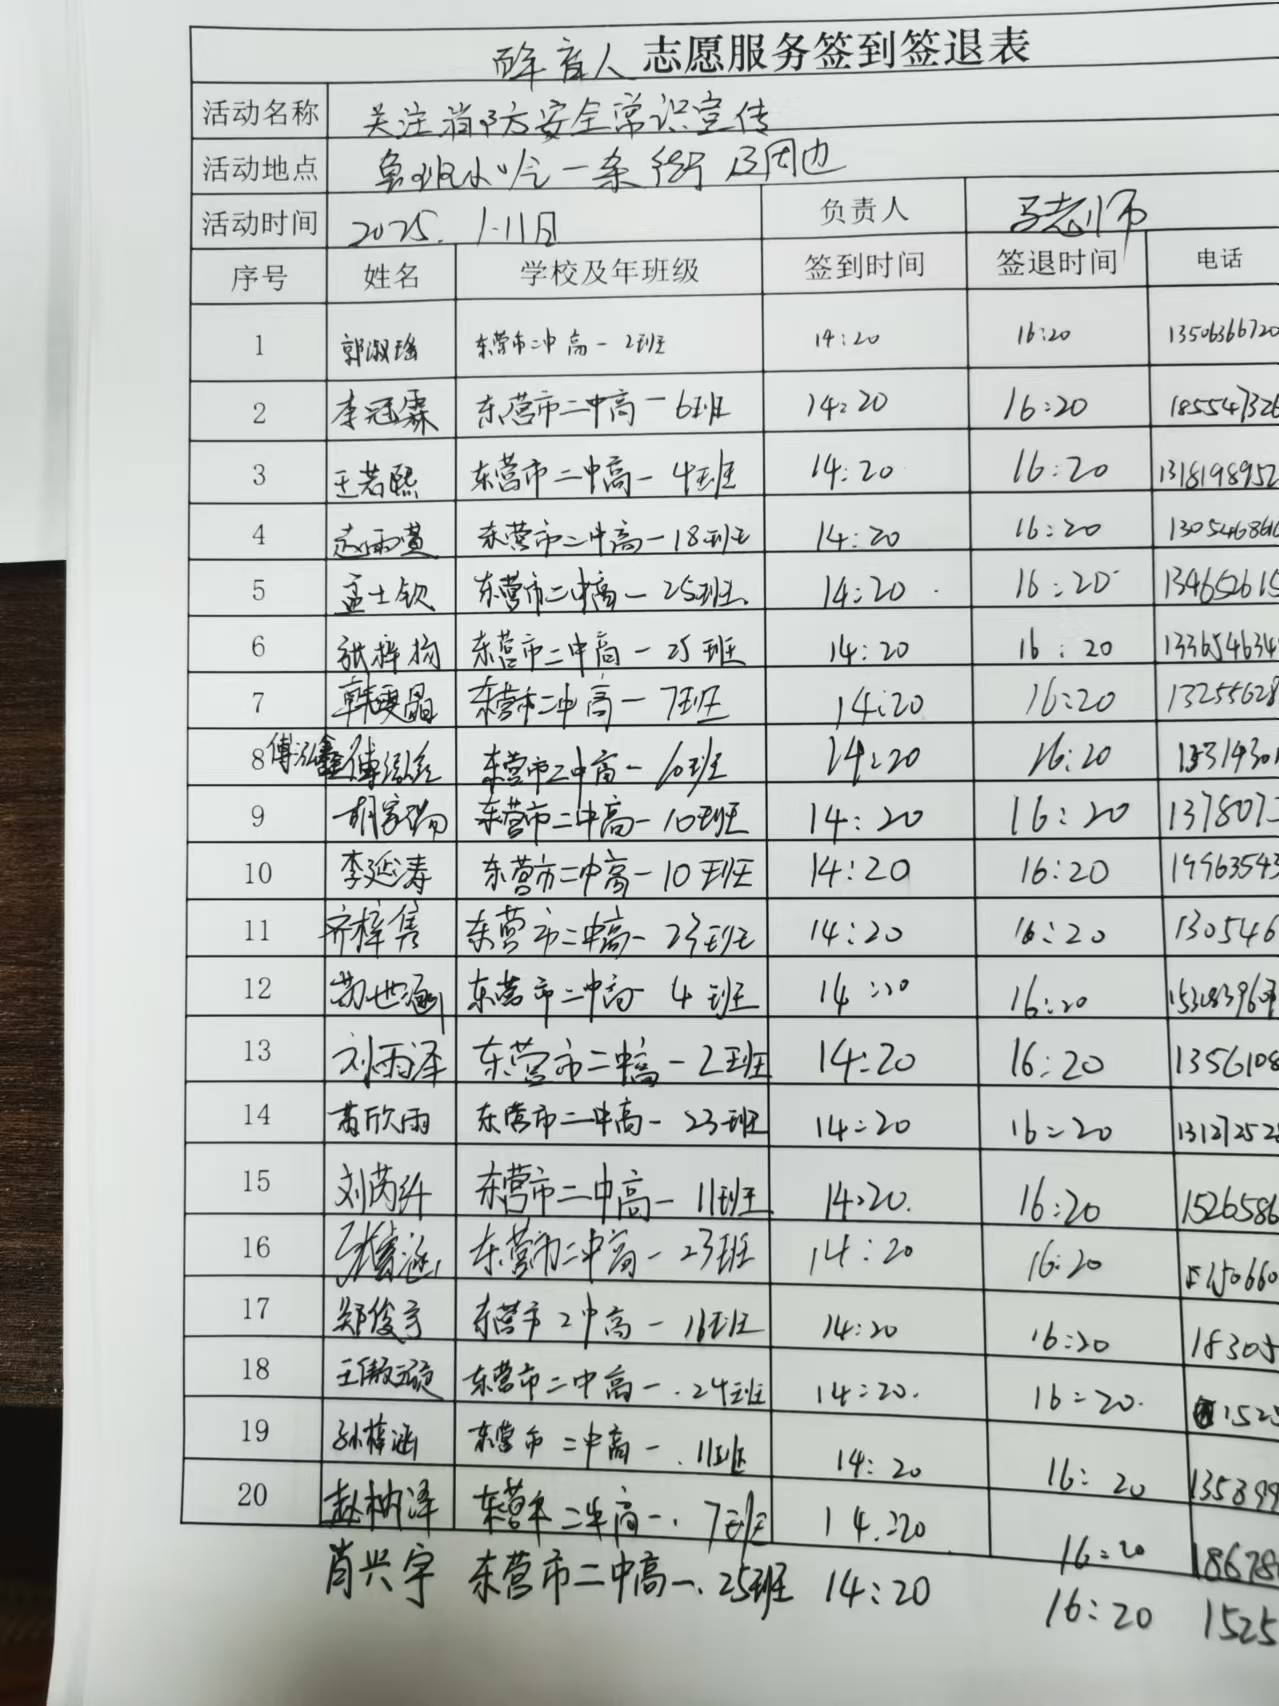 志愿服务签到签退表
活动名称 关注消防安全常识宣传
活动地点 一条街及周边
活动时间 2025.1.11日 负责人
序号 姓名 学校及年班级 签到时间 签退时间 电话
1 郭淑瑶 东营市二中高一2班 14:20 16:20 13506366720
2 李冠霖 东营市二中高一6班 14:20 16:20 185547326
3 王若熙 东营市二中高一4班 14:20 16:20 1318198952
4 东营市二中高一18班 14:20 16:20
5 孟士钦 东营市二中高一25班 14:20 16:20 134652615
6 张梓杨 东营市二中高一25班 14:20 16:20 133654634
7 韩雯晶 东营市二中高一7班 14:20 16:20 13255628
8 傅泓鑫 东营市二中高一10班 14:20 16:20
9 东营市二中高一10班 14:20 16:20 1378072
10 李延涛 东营市二中高一10班 14:20 16:20 19963543
11 齐梓隽 东营市二中高一23班 14:20 16:20 130546
12 东营市二中高一4班 14:20 16:20
13 刘雨泽 东营市二中高一2班 14:20 16:20 1356108
14 东营市二中高一23班 14:20 16:20
15 刘芮纤 东营市二中高一11班 14:20 16:20 1526586
16 东营市二中高一23班 14:20 16:20 150660
17 郑俊宇 东营市2中高一16班 14:20 16:20 18305
18 东营市二中高一.24班 14:20. 16:20. 152
19 孙梓涵 东营市二中高一.11班 14:20 16:20 135899
20 东营市二中高一.7班 14:20 16:20 186786
肖兴宇 东营市二中高一.25班 14:20 16:20 1525